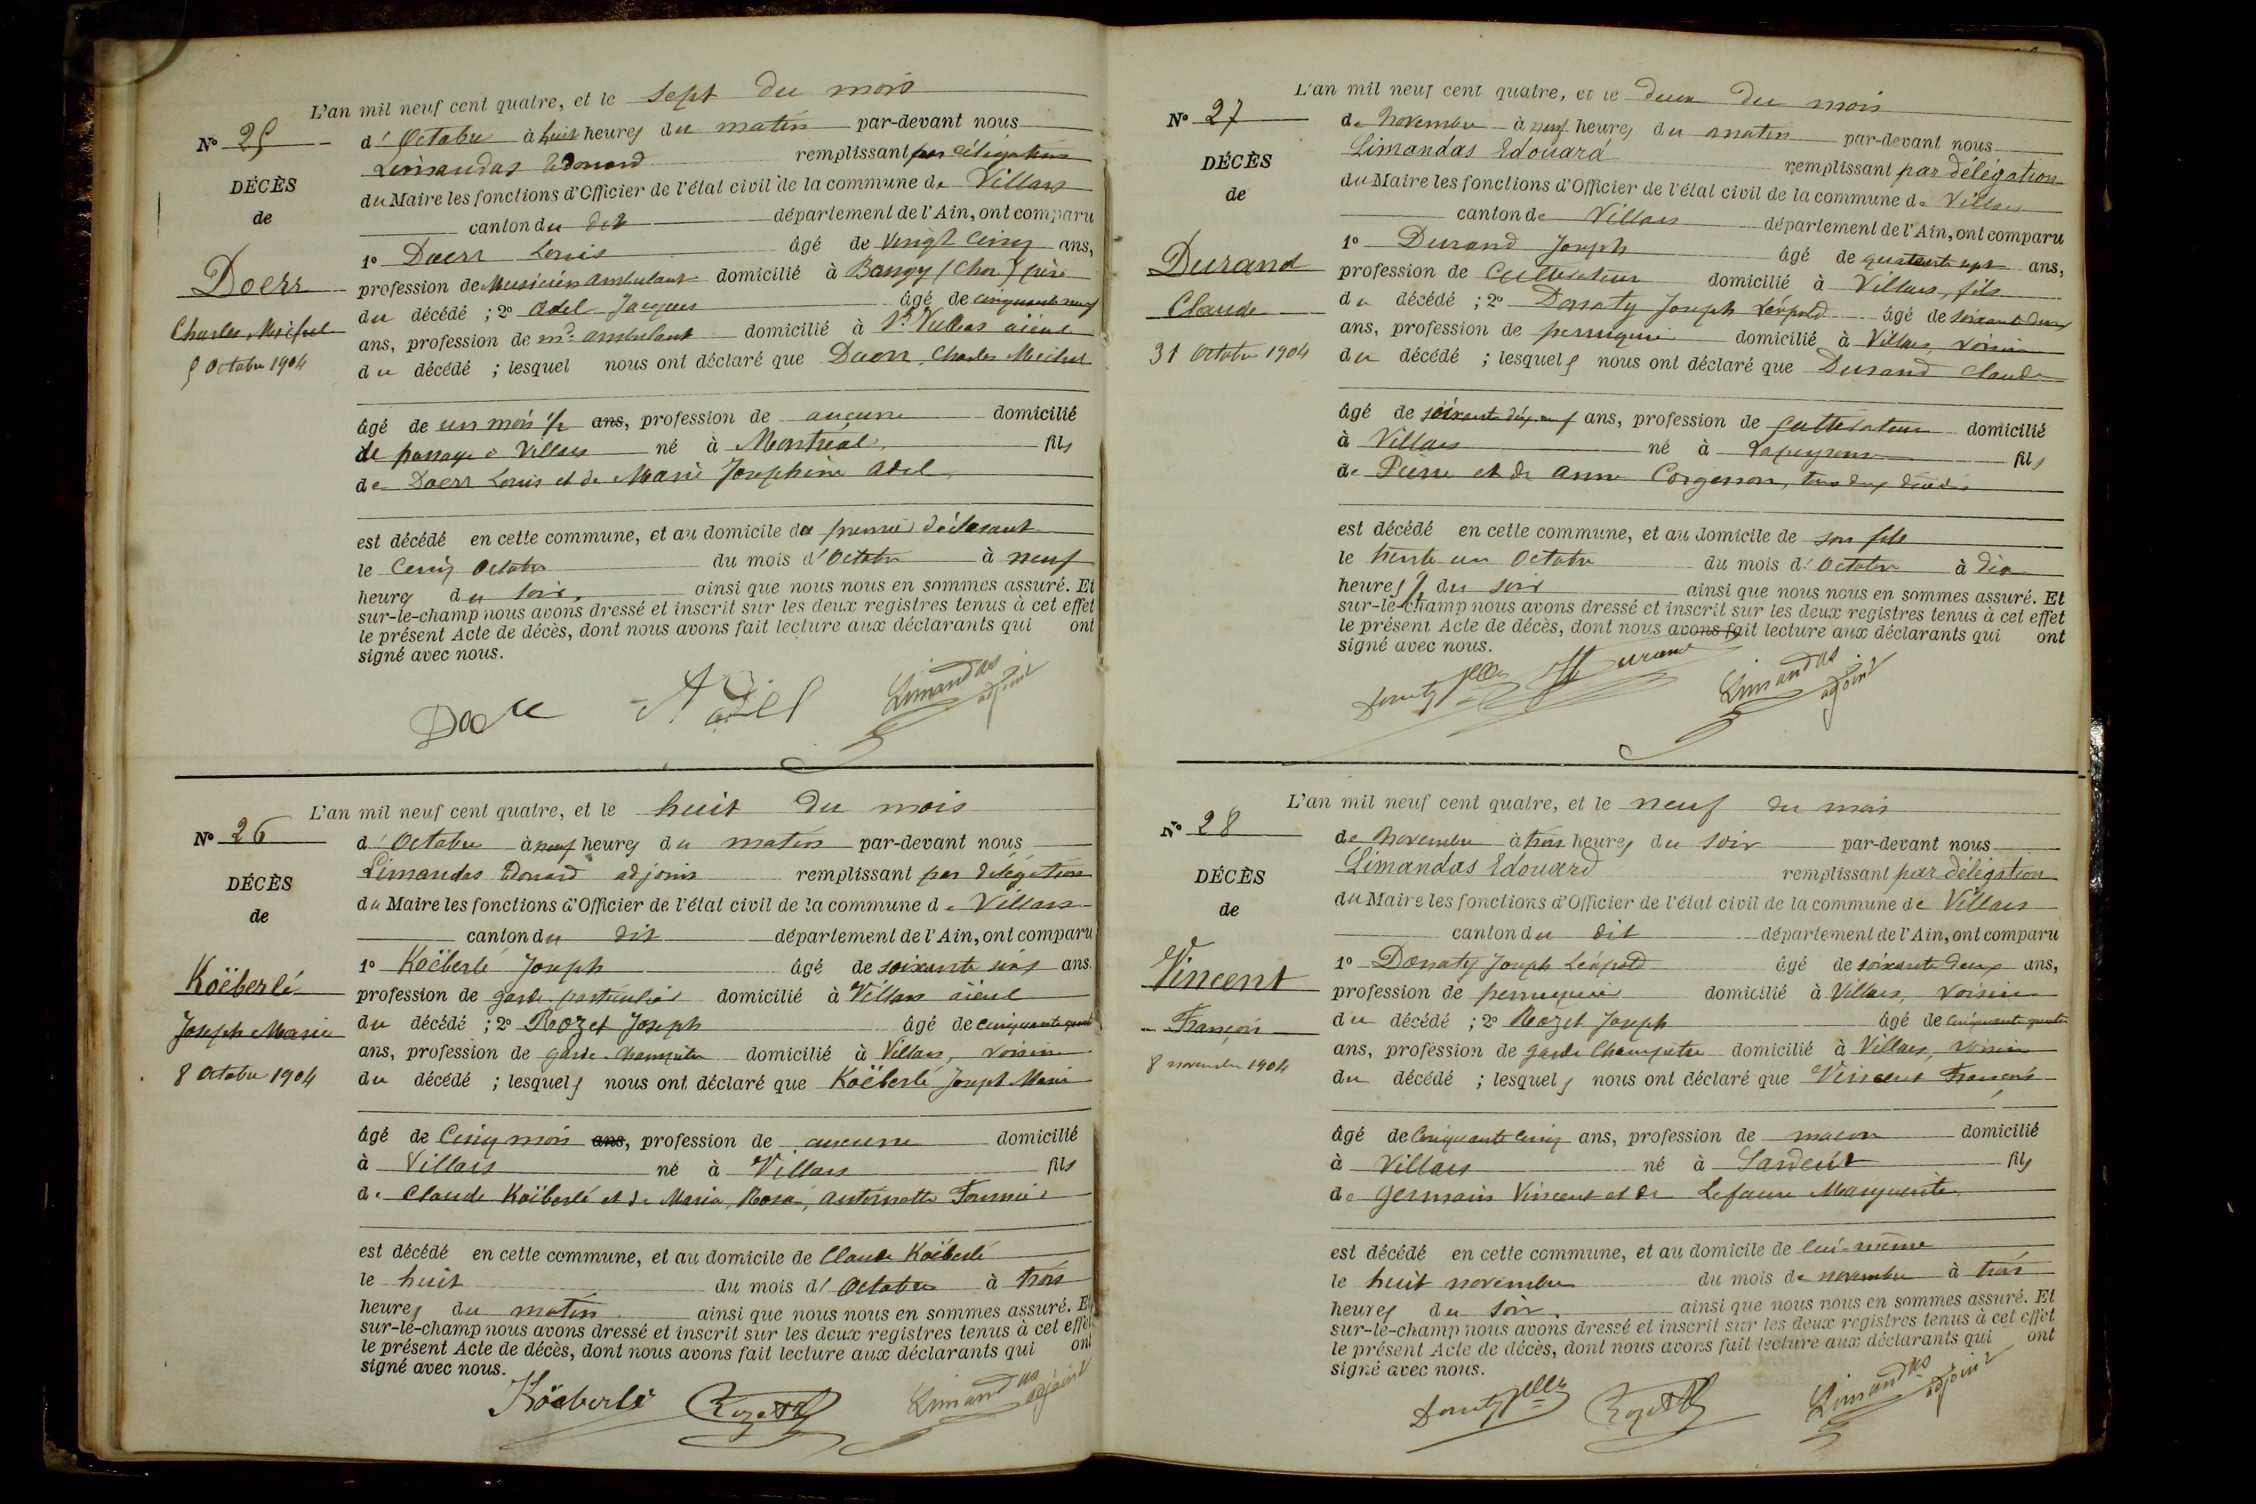 L'an mil neuf cent quatre, et le sept du mois
N° 25
d'Octobre à huit heures du matin par-devant nous
Limandas Edouard remplissant par délégation
DÉCÈS
du Maire les fonctions d'Officier de l'état civil de la commune de Villars
de
canton du dit département de l'Ain, ont comparu
1° Doerr Louis âgé de vingt cinq ans,
Doerr
profession de Musicien ambulant domicilié à (Cher) père
du décédé ; 2° Adel Jacques âgé de cinquante neuf
Charles Michel
ans, profession de mn ambulant domicilié à aïeul
5 Octobre 1904
du décédé ; lesquel nous ont déclaré que Doerr Charles Michel
âgé de un mois 1/2 ans, profession de aucune domicilié
de passage à Villars né à Montréal, fils
de Doerr Louis et de Marie Joséphine Adel
est décédé en cette commune, et au domicile du premier déclarant
le cinq Octobre du mois d'Octobre à neuf
heures du soir, ainsi que nous nous en sommes assuré. Et
sur-le-champ nous avons dressé et inscrit sur les deux registres tenus à cet effet
le présent Acte de décès, dont nous avons fait lecture aux déclarants qui ont
signé avec nous.
Doerr Adel Limandas adjoint
L'an mil neuf cent quatre, et le huit du mois
N° 26
d'Octobre à neuf heures du matin par-devant nous
Limandas Edouard adjoint remplissant par délégation
DÉCÈS
du Maire les fonctions d'Officier de l'état civil de la commune de Villars
de
canton du dit département de l'Ain, ont comparu
1° Koëberlé Joseph âgé de soixante six ans.
Koëberlé
profession de garde particulier domicilié à Villars aïeul
du décédé ; 2° Rozet Joseph âgé de cinquante quatre
Joseph Marie
ans, profession de garde champêtre domicilié à Villars, voisin
8 Octobre 1904
du décédé ; lesquels nous ont déclaré que Koëberlé Joseph Marie
âgé de Cinq mois ans, profession de aucune domicilié
à Villars né à Villars fils
de Claude Koëberlé et de Maria, Rosa, Antoinette Fournier
est décédé en cette commune, et au domicile de Claude Koëberlé
le huit du mois d'Octobre à trois
heures du matin ainsi que nous nous en sommes assuré. Et
sur-le-champ nous avons dressé et inscrit sur les deux registres tenus à cet effet
le présent Acte de décès, dont nous avons fait lecture aux déclarants qui ont
signé avec nous.
Köeberlé Rozet Limandas adjoint
L'an mil neuf cent quatre, et le deux du mois
N° 27
de Novembre à neuf heures du matin par-devant nous
Limandas Edouard remplissant par délégation
DÉCÈS
du Maire les fonctions d'Officier de l'état civil de la commune de Villars
de
canton de Villars département de l'Ain, ont comparu
1° Durand Joseph âgé de quarante sept ans,
Durand
profession de Cultivateur domicilié à Villars, fils
Claude
du décédé ; 2° Donaty Joseph Léopold âgé de soixante deux
ans, profession de perruquier domicilié à Villars, voisin
31 Octobre 1904
du décédé ; lesquels nous ont déclaré que Durand Claude
âgé de soixante dix neuf ans, profession de Cultivateur domicilié
à Villars né à Lapeyrouse fils
de Pierre et de Anne Corgenon, tous deux décédés
est décédé en cette commune, et au domicile de son fils
le trente un Octobre du mois d'Octobre à dix
heures 1/2 du soir ainsi que nous nous en sommes assuré. Et
sur-le-champ nous avons dressé et inscrit sur les deux registres tenus à cet effet
le présent Acte de décès, dont nous avons fait lecture aux déclarants qui ont
signé avec nous.
Donaty Durand Limandas adjoint
L'an mil neuf cent quatre, et le neuf du mois
N° 28
de Novembre à trois heures du soir par-devant nous
Limandas Edouard remplissant par délégation
DÉCÈS
du Maire les fonctions d'Officier de l'état civil de la commune de Villars
de
canton du dit département de l'Ain, ont comparu
1° Donaty Joseph Léopold âgé de soixante deux ans,
Vincent
profession de perruquier domicilié à Villars, voisin
François
du décédé ; 2° Rozet Joseph âgé de cinquante quatre
ans, profession de garde Champêtre domicilié à Villars, voisin
8 novembre 1904
du décédé ; lesquels nous ont déclaré que Vincent François
âgé de Cinquante cinq ans, profession de maçon domicilié
à Villars né à Sardent fils
de Germain Vincent et de Lefaure Marguerite
est décédé en cette commune, et au domicile de lui-même
le huit novembre du mois de novembre à trois
heures du soir, ainsi que nous nous en sommes assuré. Et
sur-le-champ nous avons dressé et inscrit sur les deux registres tenus à cet effet
le présent Acte de décès, dont nous avons fait lecture aux déclarants qui ont
signé avec nous.
Donaty Rozet Limandas adjoint